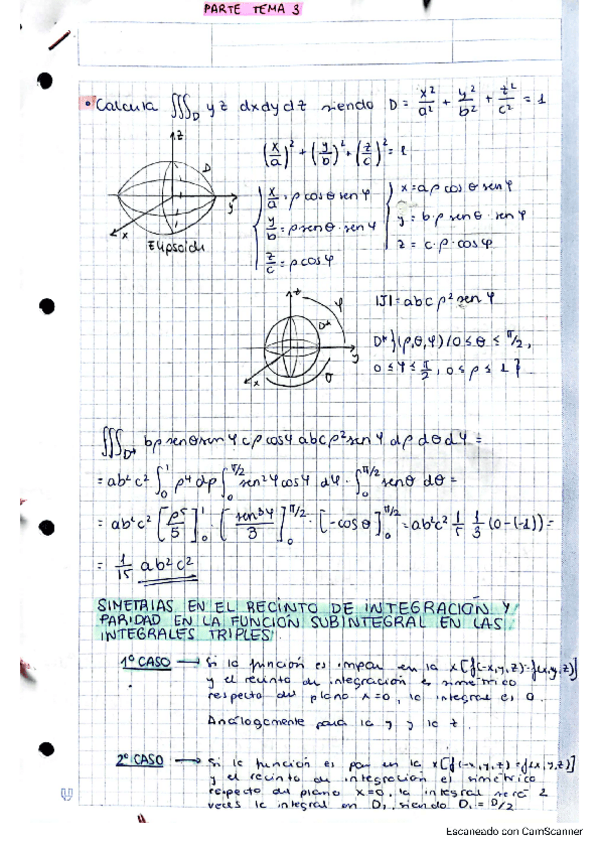 PARTE TEMA 3
• Calcula ∭_D yz dxdydz siendo D = x²/a² + y²/b² + z²/c² = 1
(x/a)² + (y/b)² + (z/c)² = 1
x/a = ρ cosθ sen φ
y/b = ρ senθ · sen φ
z/c = ρ cos φ
x = a ρ cosθ sen φ
y = b ρ senθ · sen φ
z = c · ρ · cos φ
z
D
y
x
Elipsoide
|J| = abc ρ² sen φ
D* {(ρ,θ,φ) / 0 ≤ θ ≤ π/2,
0 ≤ φ ≤ π/2, 0 ≤ ρ ≤ 1}
z
φ
D*
y
x
θ
∭_D* bρ senθ sen φ cρ cos φ abc ρ² sen φ dρ dθ dφ =
= ab²c² ∫₀¹ ρ⁴ dρ ∫₀^π/2 sen² φ cos φ dφ · ∫₀^π/2 senθ dθ =
= ab²c² [ρ⁵/5]₀¹ · [sen³φ/3]₀^π/2 · [-cosθ]₀^π/2 = ab²c² 1/5 1/3 (0-(-1)) =
= 1/15 ab²c²
SIMETRIAS EN EL RECINTO DE INTEGRACIÓN Y
PARIDAD EN LA FUNCION SUBINTEGRAL EN LAS
INTEGRALES TRIPLES
1º CASO → Si la función es impar en la x [f(-x,y,z)=-f(x,y,z)]
y el recinto de integración es simétrico
respecto del plano x=0, la integral es 0.
Análogamente para la y y la z.
2º CASO → Si la función es par en la x [f(-x,y,z)=f(x,y,z)]
y el recinto de integración es simétrico
respecto del plano x=0, la integral será 2
veces la integral en D₁ siendo D₁ = D/2
Escaneado con CamScanner